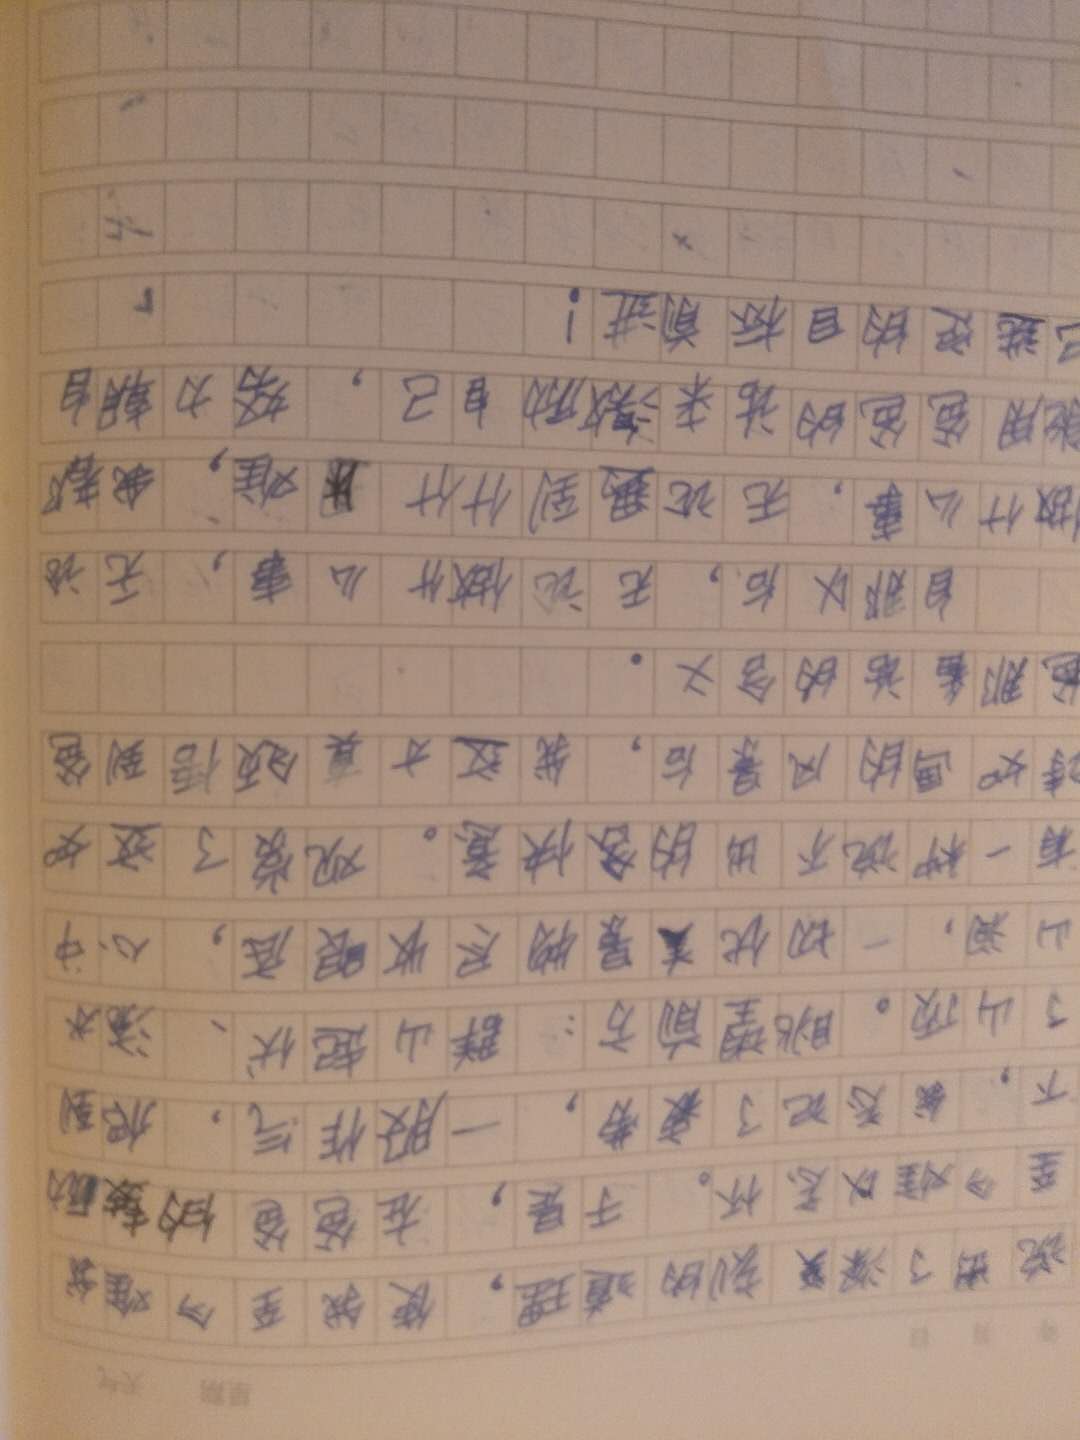 年 月 日 星期 天气
说出了深又刻的道理，使我至今难
至今难以忘怀。于是，在爸爸的鼓励
下，我忘记了疲劳，一股作气，爬到
了山顶。眺望前方：群山起伏、水
山涧，一切优美景物尽收眼底，心中
有一种说不出的各快意。观赏了这如
诗如画的风景后，我这才真领悟到爸
爸那番话的含义。
自那以后，无论做什么事，无论
做什么事，无论遇到什什困难，我都
能用爸爸的话来激励自己，努力朝自
己选定的目标前进！